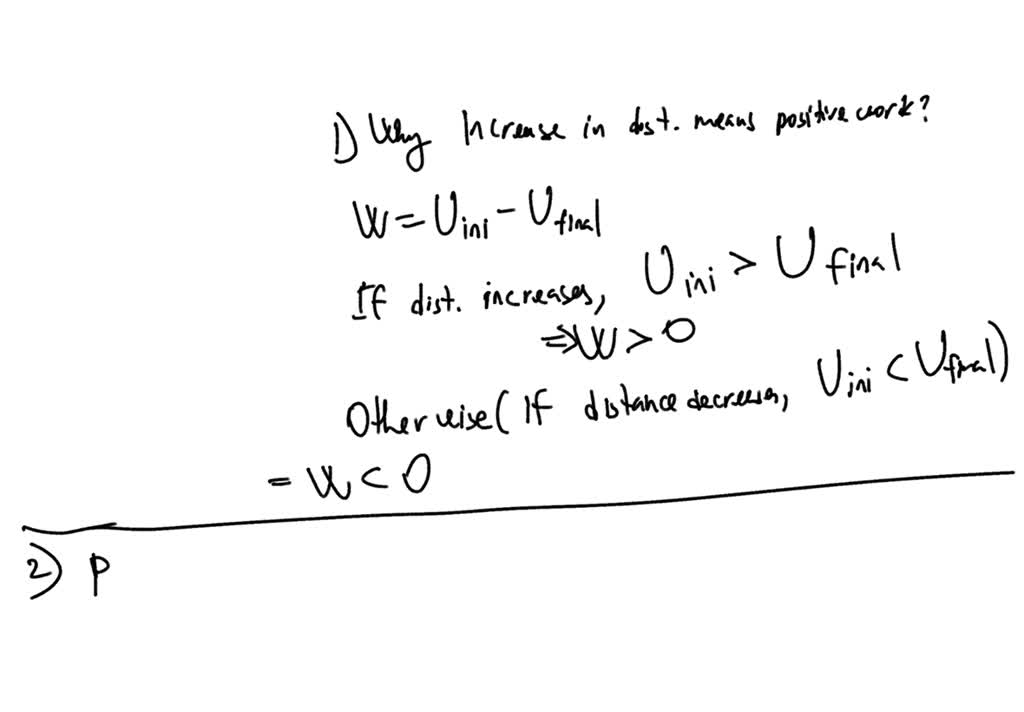 1) Why Increase in dist. means positive work?
W = U ini - U final
If dist. increases, U ini > U final
⇒ W > 0
Otherwise (If distance decreases, U ini < U final)
= W < 0
2) P